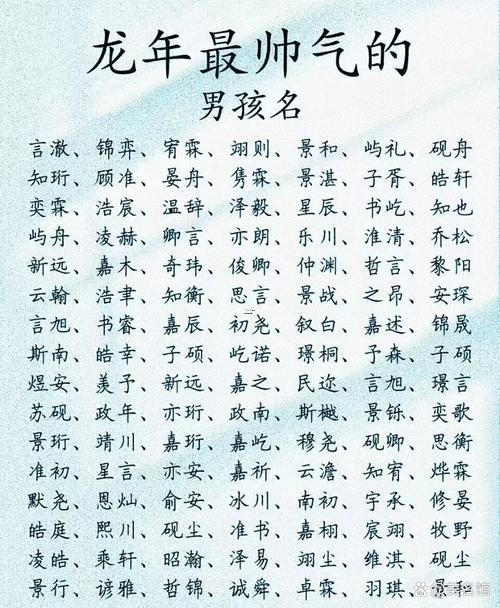 龙年最帅气的
男孩名
言澈、锦弈、宥霖、翊则、景和、屿礼、砚舟
知珩、顾准、晏舟、隽霖、景湛、子胥、皓轩
奕霖、浩宸、温辞、泽毅、星辰、书屹、知也
屿舟、凌赫、卿言、亦朗、乐川、淮清、乔松
新远、嘉木、奇玮、俊卿、仲渊、哲言、黎阳
云翰、浩聿、知衡、思言、景战、之昂、安琛
言旭、书睿、嘉辰、初尧、叙白、嘉述、锦晟
斯南、皓幸、子硕、屹诺、璟桐、予森、子硕
煜安、羡予、新远、嘉之、民迩、言旭、璟言
苏砚、政年、亦珩、政南、斯樾、景铄、奕歌
景珩、靖川、嘉珩、嘉屹、穆尧、砚卿、思衡
准初、星言、亦安、嘉祈、云澹、知宥、烨霖
默尧、恩灿、俞安、冰川、南初、宇承、修晏
皓庭、熙川、砚尘、准书、嘉栩、宸翊、牧野
凌皓、乘轩、昭瀚、泽易、翊尘、维淇、砚尘
景行、谚雅、哲锦、诚舜、卓霖、羽琪、景和